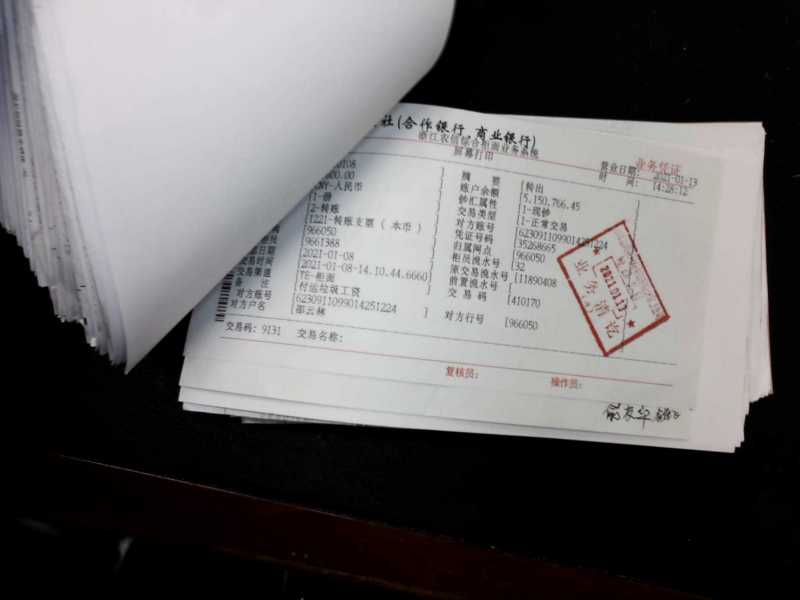 社(合作银行,商业银行)
浙江农信综合柜面业务系统
屏幕打印
业务凭证
营业日期: 2021-01-13
时 间: 14:28:12
0108
000.00
CNY-人民币
1-钞
2-转账
1221-转账支票(本币)
966050
9661388
2021-01-08
交易时间 [2021-01-08-14.10.44.6660]
交易渠道 [TE-柜面
备 注 [付运垃圾工资
对方账号 [6230911099014251224 ]
对方户名 [邵云林
摘 要 [转出
账户余额 [5,150,766.45
钞汇属性 [1-现钞
交易类型 [1-正常交易
对方账号 [6230911099014251224
凭证号码 [35268665
归属网点 [966050
柜员流水号 [32
原交易流水号 [11890408
前置流水号
交 易 码 [410170
对方行号 [966050
交易码: 9131 交易名称:
复核员: 操作员:
2021.01.13
业务清讫